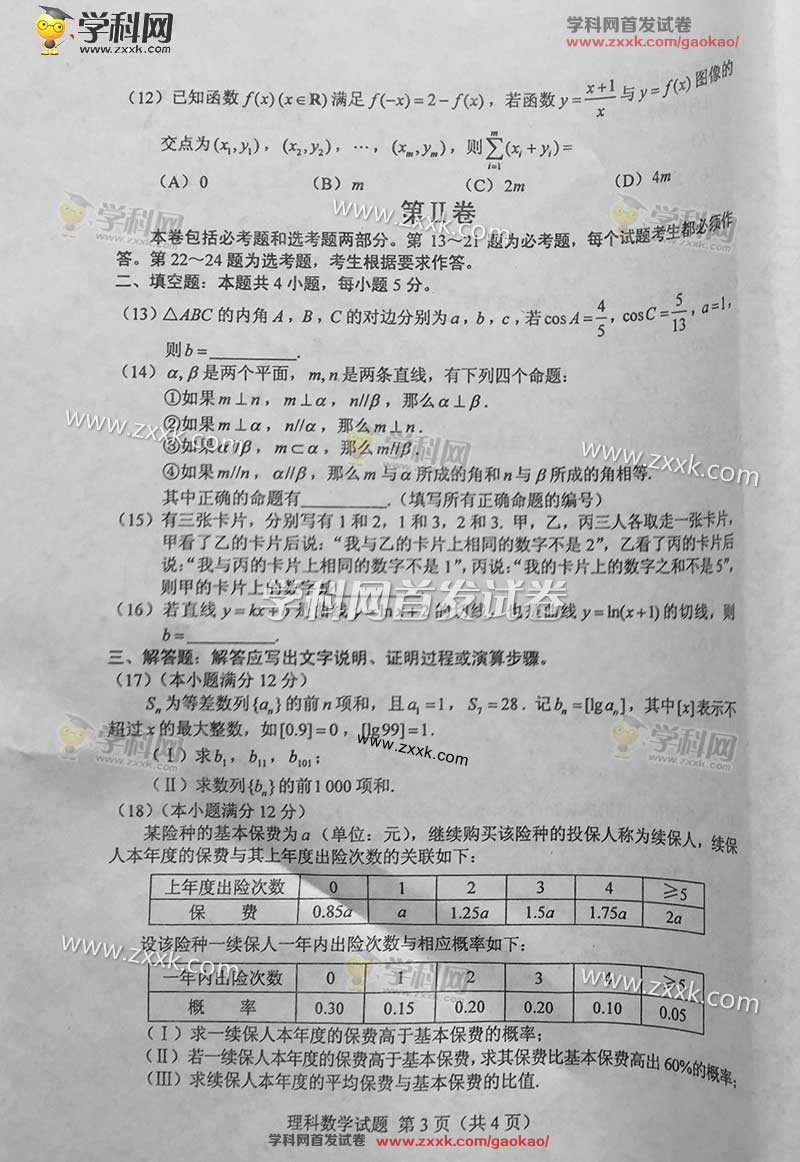 学科网
www.zxxk.com
学科网首发试卷
www.zxxk.com/gaokao/
(12) 已知函数 f(x) (x∈R) 满足 f(-x)=2-f(x)，若函数 y=(x+1)/x 与 y=f(x) 图像的
交点为 (x₁,y₁)，(x₂,y₂)，…，(xₘ,yₘ)，则 ∑_{i=1}^{m}(xᵢ+yᵢ)=
(A) 0 (B) m (C) 2m (D) 4m
第 II 卷
本卷包括必考题和选考题两部分。第 13～21 题为必考题，每个试题考生都必须作
答。第 22～24 题为选考题，考生根据要求作答。
二、填空题：本题共 4 小题，每小题 5 分。
(13) △ABC 的内角 A，B，C 的对边分别为 a，b，c，若 cos A=4/5，cos C=5/13，a=1，
则 b=________.
(14) α, β 是两个平面，m, n 是两条直线，有下列四个命题：
①如果 m⊥n，m⊥α，n//β，那么 α⊥β.
②如果 m⊥α，n//α，那么 m⊥n.
③如果 α//β，m⊂α，那么 m//β.
④如果 m//n，α//β，那么 m 与 α 所成的角和 n 与 β 所成的角相等.
其中正确的命题有________.（填写所有正确命题的编号）
(15) 有三张卡片，分别写有 1 和 2，1 和 3，2 和 3. 甲，乙，丙三人各取走一张卡片，
甲看了乙的卡片后说：“我与乙的卡片上相同的数字不是 2”，乙看了丙的卡片后
说：“我与丙的卡片上相同的数字不是 1”，丙说：“我的卡片上的数字之和不是5”，
则甲的卡片上的数字
学科网首发试卷
(16) 若直线 y=kx+ 线 y=ln x+2 的切线，也是曲线 y=ln(x+1) 的切线，则
b=________.
三、解答题：解答应写出文字说明、证明过程或演算步骤。
(17)（本小题满分 12 分）
Sₙ 为等差数列 {aₙ} 的前 n 项和，且 a₁=1，S₇=28. 记 bₙ=[lg aₙ]，其中 [x] 表示不
超过 x 的最大整数，如 [0.9]=0，[lg99]=1.
(Ⅰ) 求 b₁，b₁₁，b₁₀₁；
(Ⅱ) 求数列 {bₙ} 的前 1 000 项和.
(18)（本小题满分 12 分）
某险种的基本保费为 a（单位：元），继续购买该险种的投保人称为续保人，续保
人本年度的保费与其上年度出险次数的关联如下：
上年度出险次数 0 1 2 3 4 ≥5
保 费 0.85a a 1.25a 1.5a 1.75a 2a
设该险种一续保人一年内出险次数与相应概率如下：
一年内出险次数 0 1 2 3 4 ≥5
概 率 0.30 0.15 0.20 0.20 0.10 0.05
(Ⅰ) 求一续保人本年度的保费高于基本保费的概率；
(Ⅱ) 若一续保人本年度的保费高于基本保费，求其保费比基本保费高出 60%的概率；
(Ⅲ) 求续保人本年度的平均保费与基本保费的比值.
理科数学试题 第 3 页（共 4 页）
学科网首发试卷 www.zxxk.com/gaokao/